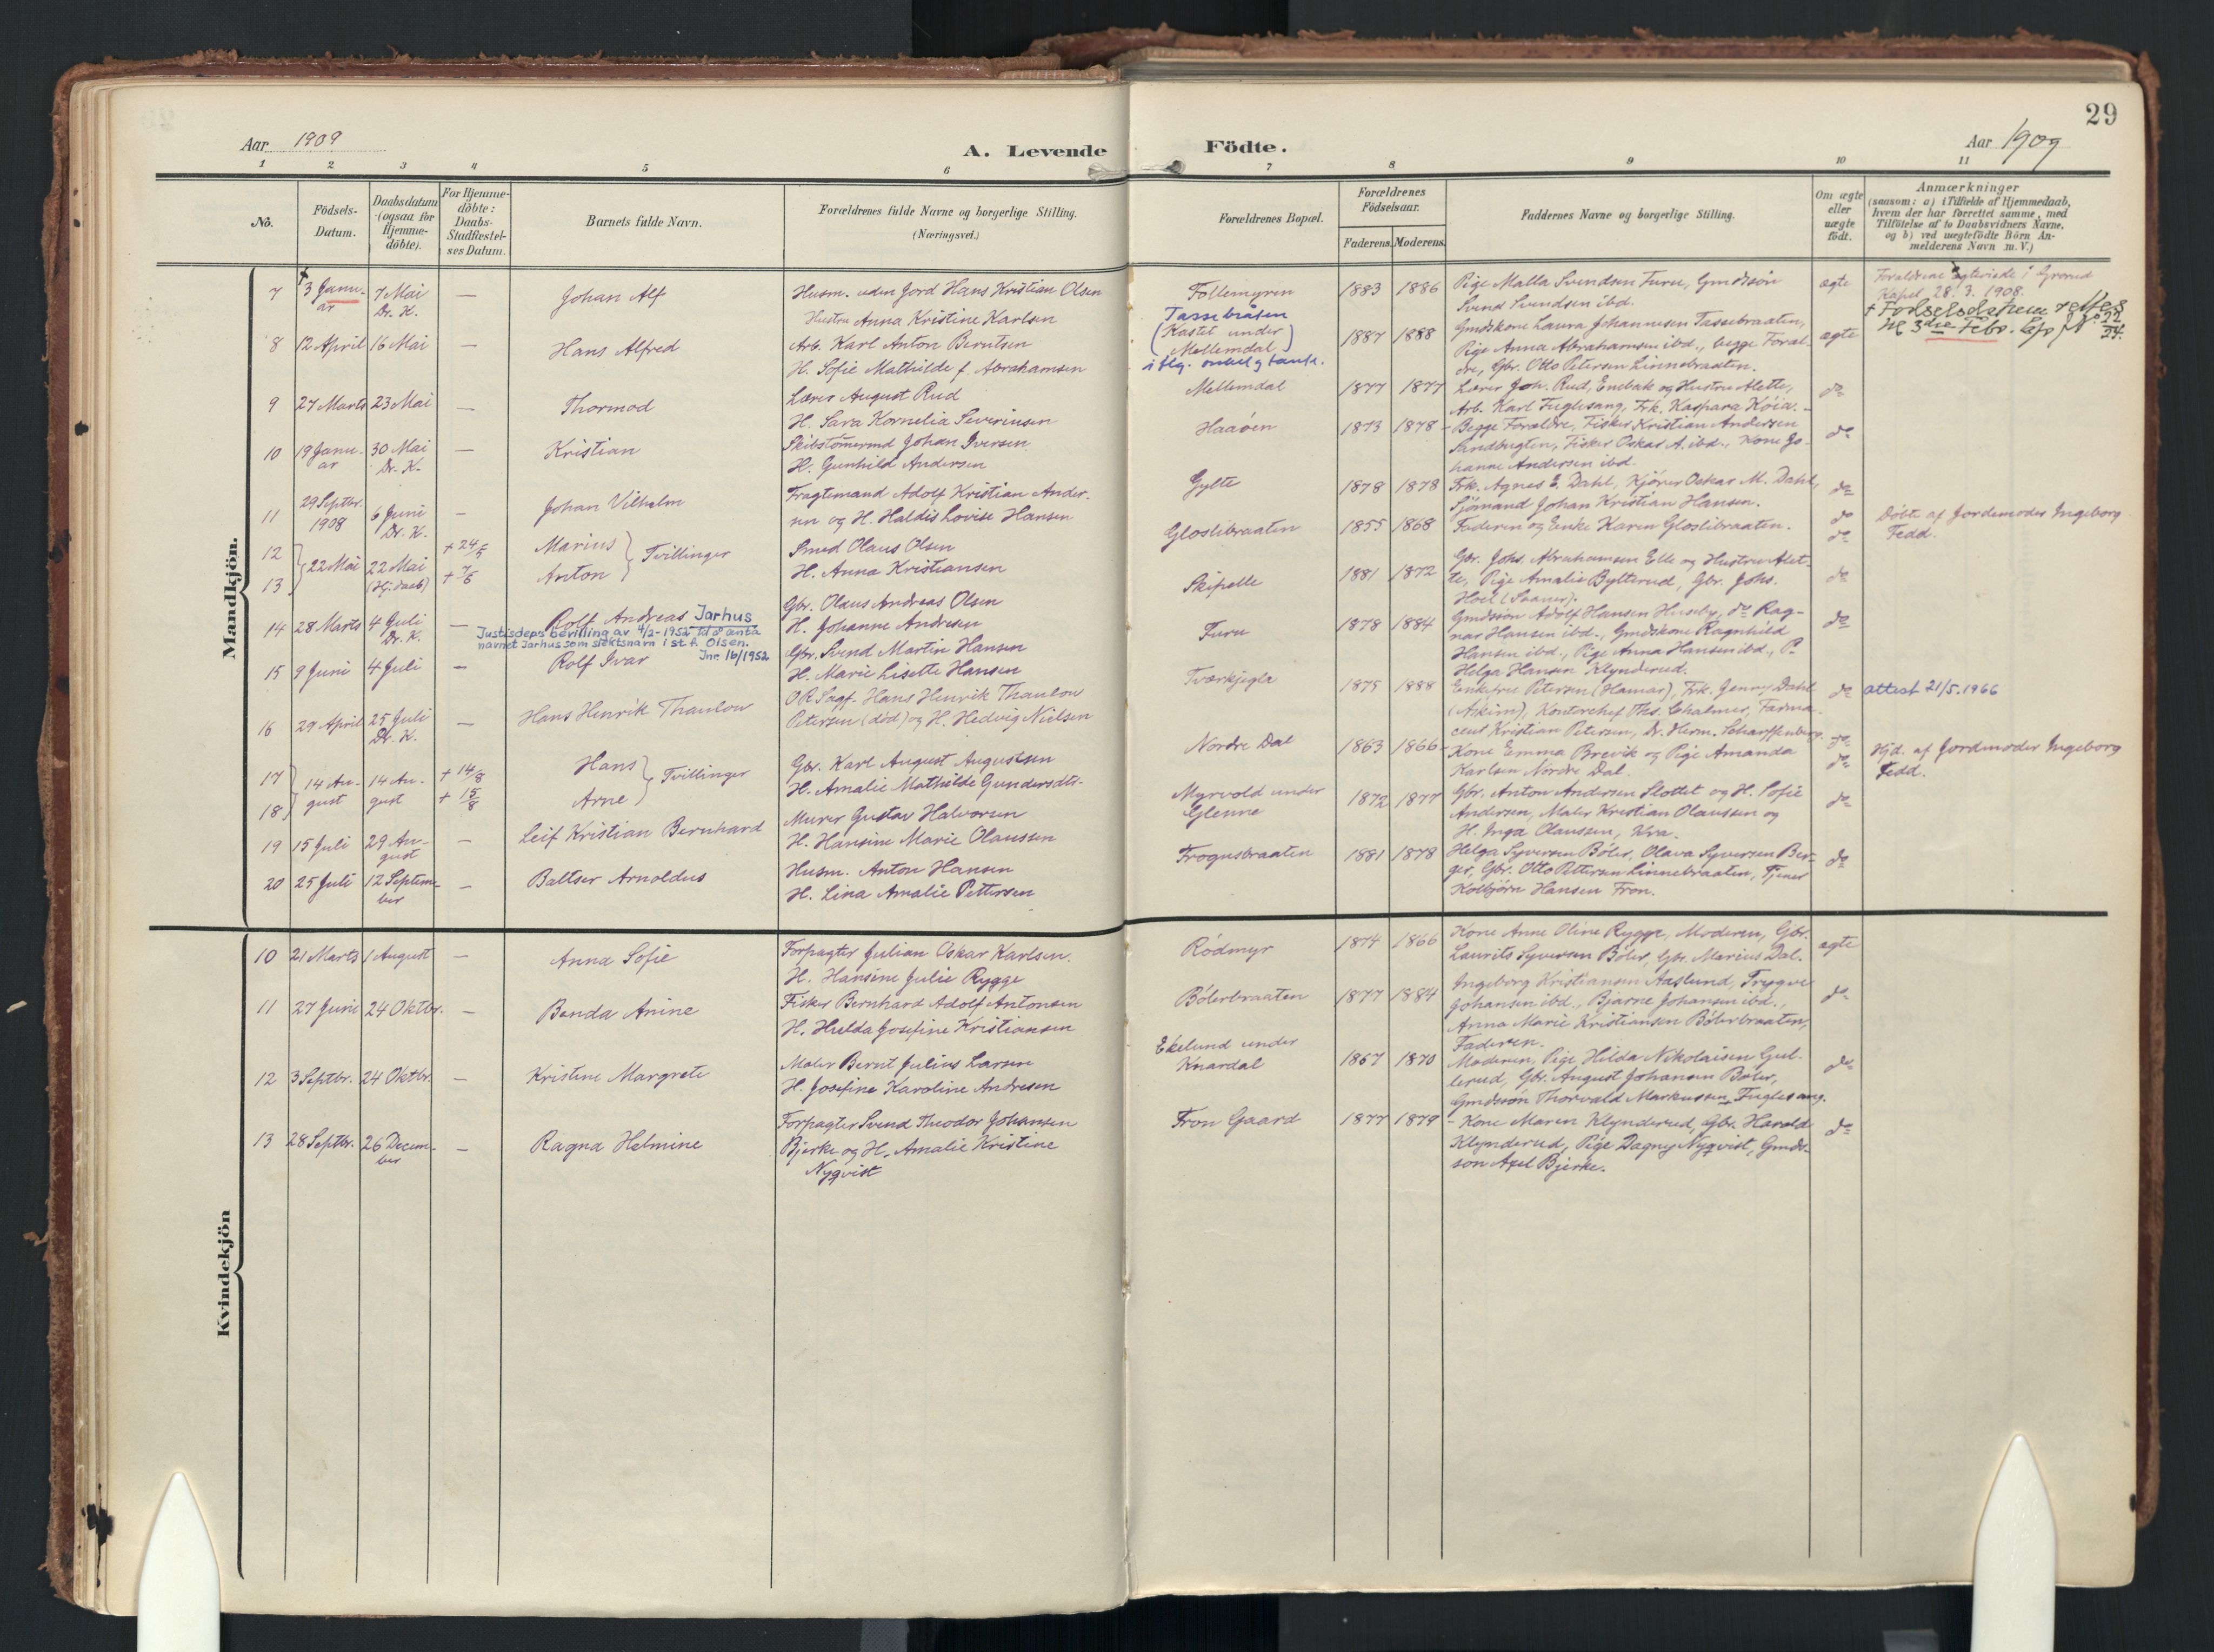 29
Aar 1909
A. Levende Födte.
Aar 1909
1 2 3 4 5 6 7 8 9 10 11
No.
Födsels-Datum.
Daabsdatum (ogsaa for Hjemme-döbte).
For Hjemme-döbte: Daabs-Stadfæstel-ses Datum.
Barnets fulde Navn.
Forældrenes fulde Navne og borgerlige Stilling.
(Næringsvei.)
Forældrenes Bopæl.
Forældrenes Födselsaar.
Faderens. Moderens.
Faddernes Navne og borgerlige Stilling.
Om ægte eller uægte födt.
Anmærkninger
(saasom: a) i Tilfælde af Hjemmedaab,
hvem der har forrettet samme, med
Tilföielse af to Daabsvidners Navne,
og b) ved uægtefödte Börn An-
melderens Navn m. V.)
Mandkjön.
7 3 Janu-ar 7 Mai Dr. K. — Johan Alf
Husm. uden Jord Hans Kristian Olsen
Hustru Anna Kristine Karlsen
Follemyren 1883 1886
Pige Malla Svendsen Furu, Gmdssön
Svend Svendsen ibd.
ægte
Forældrene ægteviede i Grorud
Kapel 28.3.1908.
8 12 April 16 Mai — Hans Alfred
Arb. Karl Anton Berntsen
H. Sofie Mathilde f. Abrahamsen
Tassebråsen
(Kastet under
Mellemdal)
1887 1888
Gmdskone Laura Johannesen Tassebraaten,
Pige Anna Abrahamsen ibd., begge Foræl-
dre, Gbr. Otto Petersen Linnebraaten.
ægte
9 27 Marts 23 Mai — Thormod
Lærer August Rud
H. Sara Kornelia Severinsen
Mellemdal 1877 1877
Lærer Joh. Rud, Enebak og Hustru Alette,
Arb. Karl Fuglesang, Frk. Kaspara Köia.
do
10 19 Janu-ar 30 Mai Dr. K. — Kristian
Skibstömermd Johan Iversen
H. Gunhild Andersen
Haaöen 1873 1878
Begge Forældre, Fisker Kristian Andersen
Sandbugten, Fisker Oskar A. ibd., Kone Jo-
hanne Andersen ibd.
do
11 29 Septbr. 1908 6 Juni Dr. K. — Johan Vilhelm
Fragtemand Adolf Kristian Ander-
sen og H. Haldis Lovise Hansen
Gylte 1878 1878
Frk. Agnes E. Dahl, Kjörer Oskar M. Dahl,
Sjömand Johan Kristian Hansen.
do
12 22 Mai 22 Mai (Hj. daab) + 24/5 Marius } Tvillinger
13 + 7/6 Anton
Smed Olaus Olsen
H. Anna Kristiansen
Gloslibraaten 1855 1868
Faderen og Enke Karen Gloslibraaten.
do
do
Döbt af Jordemoder Ingeborg
Fedd.
14 28 Marts 4 Juli Dr. K. — Rolf Andreas Jarhus
Justisdeps bevilling av 4/2-1952 til å anta
navnet Jarhus som slektsnavn i st. f. Olsen.
Jnr. 16/1952
Gbr. Olaus Andreas Olsen
H. Johanne Andresen
Skipelle 1881 1872
Gbr. Johs. Abrahamsen Elle og Hustru Alet-
te, Pige Amalie Bylterud, Gbr. Johs.
Hoel (Saaner).
do
15 9 Juni 4 Juli — Rolf Ivar
Gbr. Svend Martin Hansen
H. Marie Lisette Hansen
Furu 1878 1884
Gmdssön Adolf Hansen Huseby, do Rag-
nar Hansen ibd., Gmdskone Ragnhild
Hansen ibd., Pige Anna Hansen ibd., P.
Helga Hansen Klynderud.
do
16 29 April 25 Juli Dr. K. — Hans Henrik Thaulow
O.R.Sagf. Hans Henrik Thaulow
Petersen (död) og H. Hedvig Nielsen
Tværkjegla 1875 1888
Enkefru Petersen (Hamar), Frk. Jenny Dahl
(Askim), Kontorchef Ths. Chalmer, Farma-
ceut Kristian Petersen, Dr. Herm. Scharffenberg.
do
attest 21/5.1966
17 14 Au-gust 14 Au-gust + 14/8 Hans } Tvillinger
18 + 15/8 Arne
Gbr. Karl August Augustsen
H. Amalie Mathilde Gundersdtr.
Nordre Dal 1863 1866
Kone Emma Brevik og Pige Amanda
Karlsen Nordre Dal.
do
do
Hjd. af Jordemoder Ingeborg
Fedd.
19 15 Juli 29 Au-gust — Leif Kristian Bernhard
Murer Gustav Halvorsen
H. Hansine Marie Olaussen
Myrvold under
Glenne
1872 1877
Gbr. Anton Andersen Slottet og H. Sofie
Andersen, Maler Kristian Olaussen og
H. Inga Olaussen, Kra.
do
20 25 Juli 12 Septem-ber — Baltser Arnoldus
Husm. Anton Hansen
H. Lina Amalie Pettersen
Frognsbraaten 1881 1878
Helga Syversen Böler, Olava Syversen Ber-
ger, Gbr. Otto Pettersen Linnebraaten, Tjener
Kolbjörn Hansen Fron.
do
Kvindekjön
10 21 Marts 1 August — Anna Sofie
Forpagter Julian Oskar Karlsen.
H. Hansine Julie Rygge
Rödmyr 1874 1866
Kone Anne Oline Rygge, Moderen, Gbr.
Laurits Syversen Böler, Gbr. Marius Dal.
ægte
11 27 Juni 24 Oktbr. — Benda Anine
Fisker Bernhard Adolf Antonsen
H. Hulda Josefine Kristiansen
Bölerbraaten 1877 1884
Ingeborg Kristiansen Aaslund, Trygve
Johansen ibd., Bjarne Johansen ibd.,
Anna Marie Kristiansen Bölerbraaten,
Faderen.
do
12 3 Septbr. 24 Oktbr. — Kristine Margrete
Maler Bernt Julius Larsen
H. Josefine Karoline Andresen
Ekelund under
Knardal
1867 1870
Moderen, Pige Hilda Nikolaisen Gul-
lerud, Gbr. August Johansen Böler,
Gmdssön Thorvald Markussen Fuglesang.
do
13 28 Septbr. 26 Decem-ber — Ragna Helmine
Forpagter Svend Theodor Johansen
Bjerke og H. Amalie Kristine
Nyqvist
Fron Gaard 1877 1879
Kone Maren Klynderud, Gbr. Harald
Klynderud, Pige Dagny Nyqvist, Gmds-
sön Axel Bjerke.
do